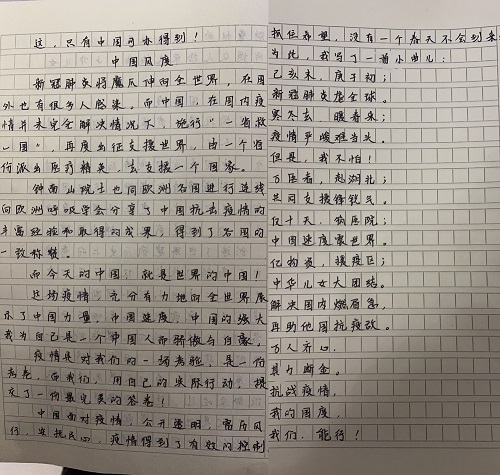 这,只有中国可办得到!
中国风度
新冠肺炎将魔爪伸向全世界,在国
外也有很多人感染。而中国,在国内疫
情并未完全解决情况下,施行“一省救
一国”,再度出征支援世界,由一个省
份派出医疗精英,去支援一个国家。
钟南山院士也同欧洲各国进行连线
向欧洲呼吸学会分享了中国抗击疫情的
丰富经验和取得的成果,得到了各国的
一致称赞。
而今天的中国,就是世界的中国!
这场疫情,充分有力地向全世界展
示了中国力量,中国速度,中国的强大
我为自己是一个中国人而骄傲与自豪,
疫情是对我们的一场考验,是一份
考卷,而我们,用自己的实际行动,提
交了一份最完美的答卷!
中国面对疫情,公开透明,雷厉风
行,安抚民心,疫情得到了有效的控制
抓住希望,没有一个春天不会到来
为此,我写了一首小曲儿:
己亥末,庚子初;
新冠肺炎虐全球。
寒冬去,暖春来;
疫情严峻难当头。
但是,我不怕!
万医者,赴湖北;
共同支援得锐气。
仅十天,筑医院;
中国速度震世界。
亿物资,援疫区;
中华儿女大团结。
解决国内燃眉急,
再助他国抗疫战。
万人齐心,
其力断金。
抗战疫情,
我的国度,
我们,能行!